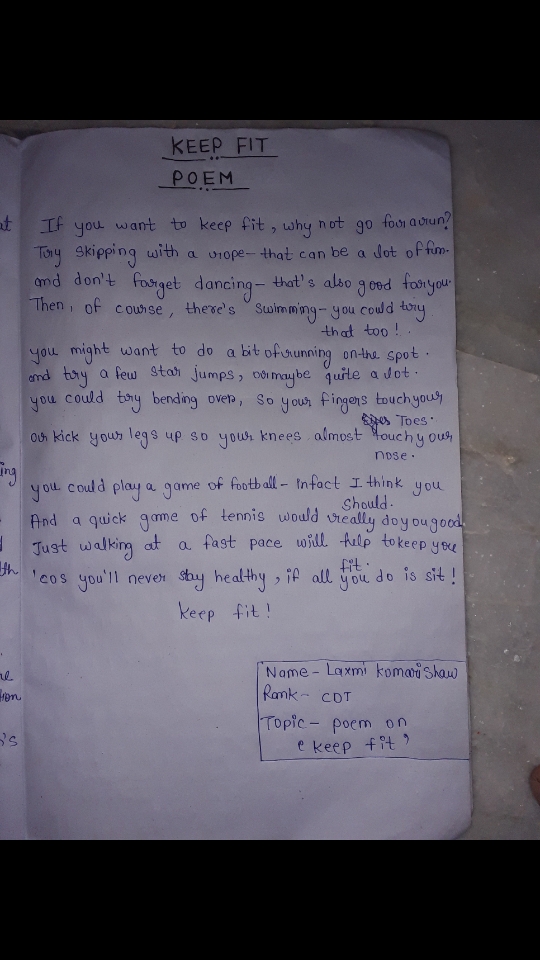 KEEP FIT
POEM
at
If you want to keep fit, why not go for a run?
Try skipping with a rope- that can be a lot of fun.
and don't forget dancing- that's also good for you.
Then, of course, there's swimming- you could try
that too!.
you might want to do a bit of running on the spot.
and try a few star jumps, or maybe quite a lot.
you could try bending over, so your fingers touch your
Toes.
or kick your legs up so your knees almost touch your
nose.
ing
you could play a game of football- Infact I think you
should.
And a quick game of tennis would really do you good
Just walking at a fast pace will help to keep you
fit.
th
'cos you'll never stay healthy, if all you do is sit!
keep fit!
re
tion
's
Name- Laxmi kumari Shaw
Rank- CDT
Topic- poem on
'keep fit'